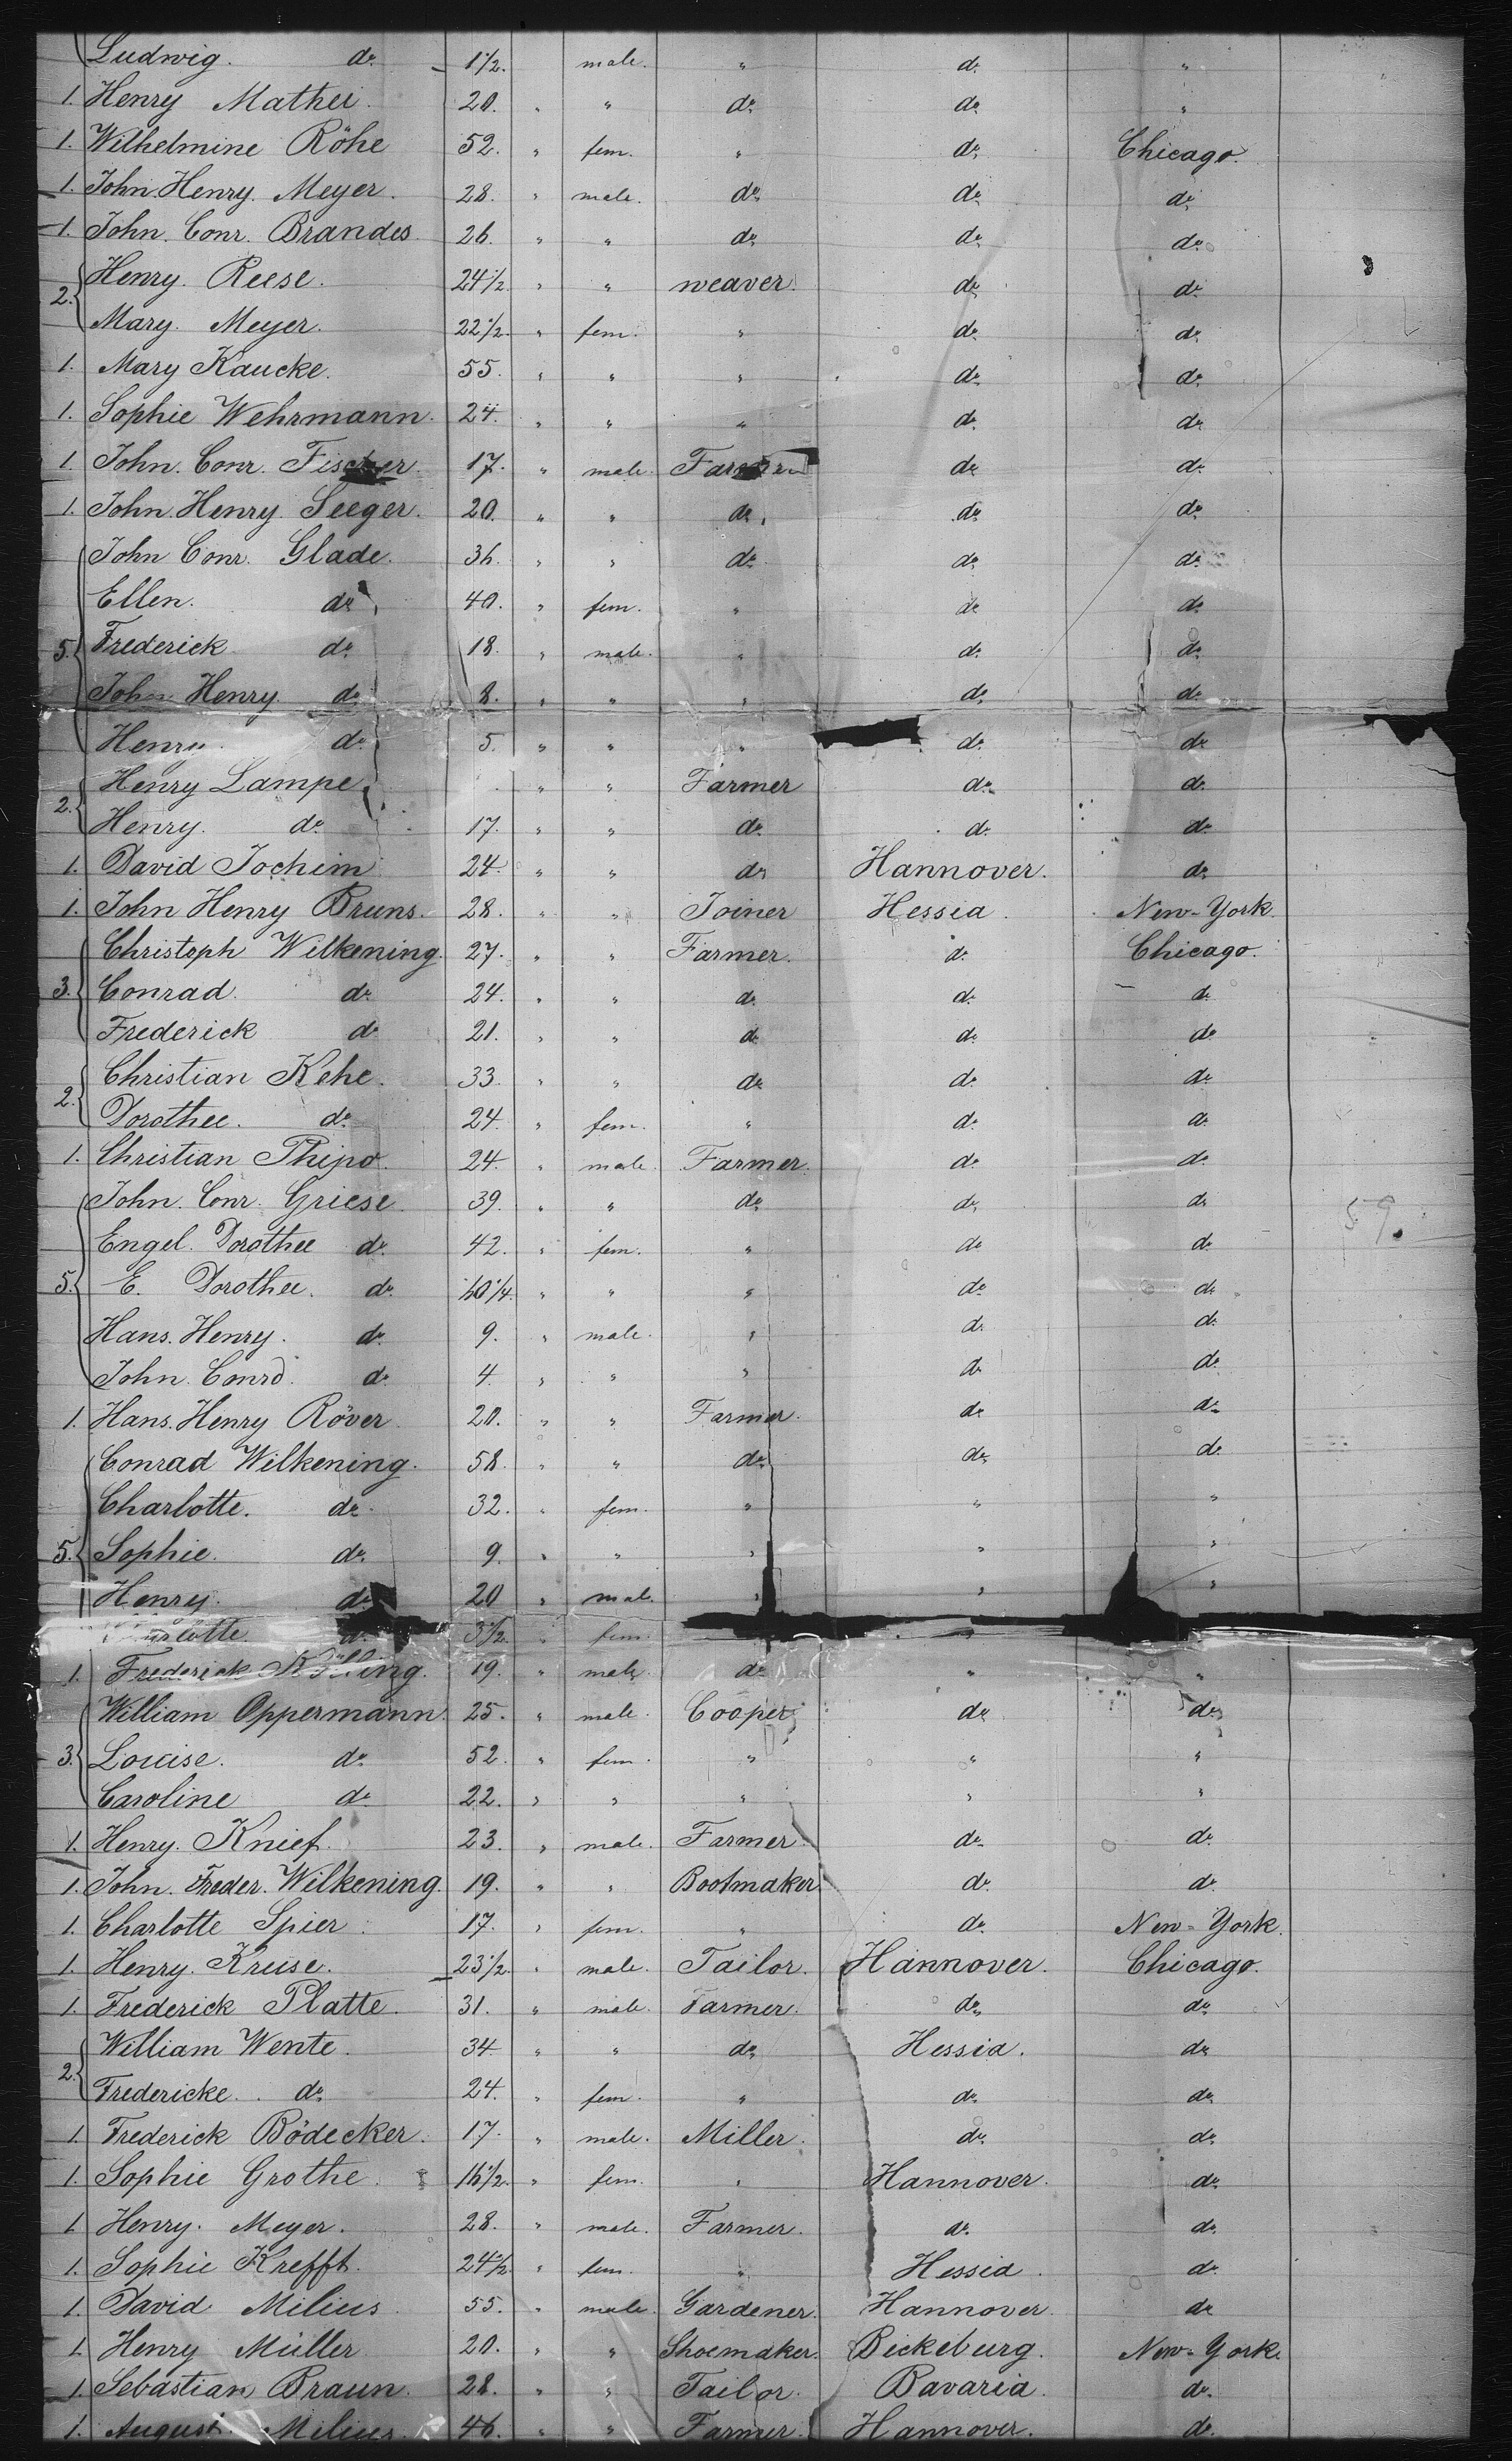 Ludwig. do 1 1/2. male. " do "
1. Henry Mathei. 20. " " do do "
1. Wilhelmine Röhe 52. " fem. " do Chicago.
1. John Henry Meyer. 28. " male. do do do
1. John. Conr. Brandes 26. " " do do do
Henry. Reese. 24 1/2. " " weaver. do do
2.
Mary. Meyer. 22 1/2. " fem. " do do
1. Mary Kaucke. 55. " " " do do
1. Sophie Wehrmann. 24. " " " do do
1. John. Conr. Fischer. 17. " male. Farmer do do
1. John. Henry Seeger. 20. " " do do do
John Conr. Glade. 36. " " do do do
Ellen. do 40. " fem. " do do
5. Frederick do 18. " male. " do do
John Henry. do 8. " " " do do
Henry. do 5. " " " do do
Henry Lampe " " Farmer do do
2.
Henry. do 17. " " do do do
1. David Jochim 24. " " do Hannover. do
1. John Henry Bruns. 28. " " Joiner Hessia. New-York.
Christoph Wilkening. 27. " " Farmer. do Chicago.
3. Conrad. do 24. " " do do do
Frederick do 21. " " do do do
Christian Kehe. 33. " " do do do
2.
Dorothee. do 24. " fem. " do do
1. Christian Thipo. 24. " male. Farmer. do do
John. Conr. Griese. 39. " " do do do
59.
Engel. Dorothee do 42. " fem. " do do
5. E. Dorothee. do 10 1/4. " " " do do
Hans. Henry. do 9. " male. " do do
John. Conrd. do 4. " " " do do
1. Hans. Henry Röver 20. " " Farmer. do do
Conrad Wilkening. 58. " " do do do
Charlotte. do 32. " fem. " " "
5. Sophie. do 9. " " " " "
Henry. do 20 " male. " " "
do 3 1/2. " fem. "
1. Frederick Kölling. 19. " male. do " "
William Oppermann. 25. " male. Cooper do do
3. Louise. do 52. " fem. " " "
Caroline do 22. " " " " "
1. Henry. Knief. 23. " male. Farmer. do do
1. John. Freder. Wilkening. 19. " " Bootmaker. do do
1. Charlotte Spier. 17. " fem. " do New-York.
1. Henry. Kruse. 23 1/2. " male. Tailor. Hannover. Chicago.
1. Frederick Platte. 31. " male. Farmer. do do
William Wente. 34. " " do Hessia. do
2.
Fredericke. do 24. " fem. " do do
1. Frederick Bödecker. 17. " male. Miller. do do
1. Sophie Grothe. 16 1/2. " fem. " Hannover. do
1. Henry. Meyer. 28. " male. Farmer. do do
1. Sophie Krefft. 24 1/2. " fem. " Hessia. do
1. David Milius. 55. " male. Gardener. Hannover. do
1. Henry Müller 20. " " Shoemaker. Bickeburg. New-York.
1. Sebastian Braun. 28. " " Tailor. Bavaria. do
1. August. Milius. 46. " " Farmer. Hannover. do